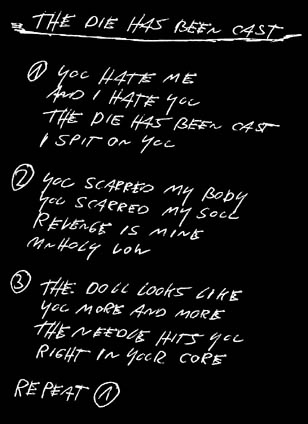 THE DIE HAS BEEN CAST
1 YOU HATE ME
AND I HATE YOU
THE DIE HAS BEEN CAST
I SPIT ON YOU
2 YOU SCARRED MY BODY
YOU SCARRED MY SOUL
REVENGE IS MINE
UNHOLY VOW
3 THE DOLL LOOKS LIKE
YOU MORE AND MORE
THE NEEDLE HITS YOU
RIGHT IN YOUR CORE
REPEAT 1